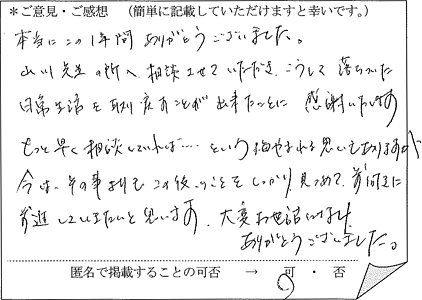 *ご意見・ご感想 (簡単に記載していただけますと幸いです。)
本当にこの1年間ありがとうございました。
山川先生の所へ相談させていただき、こうして落ちついた
日常生活を取り戻すことが出来たことに感謝いたします
もっと早く相談していれば…という悔やまれる思いもありますが
今は、その事よりもこの後のことをしっかり見つめて、前向きに
前進していきたいと思います。大変お世話になりました
ありがとうございました。
匿名で掲載することの可否 → 可 ・ 否